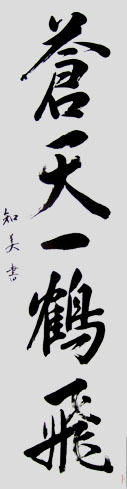 蒼天一鶴飛
知美書